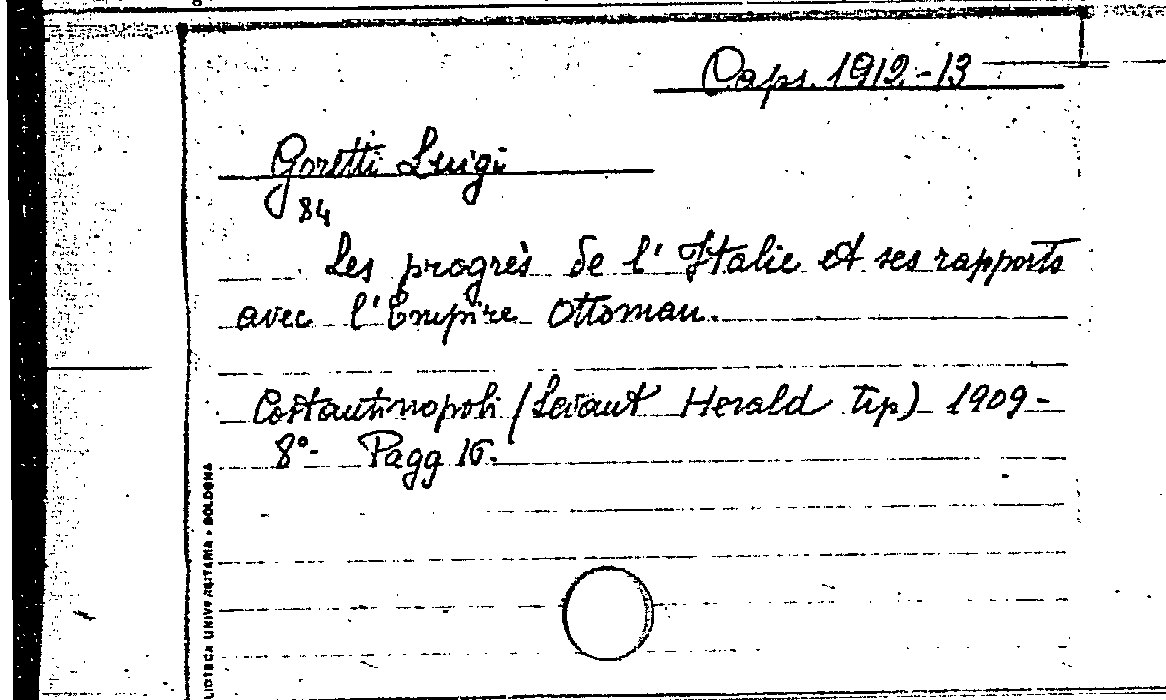 Caps. 1912-13
Goretti Luigi
84
Les progrès de l'Italie et ses rapports
avec l'Empire Ottoman.
Costantinopoli (Levant Herald tip) 1909-
8°- Pagg 16.
BLIOTECA UNIVERSITARIA • BOLOGNA